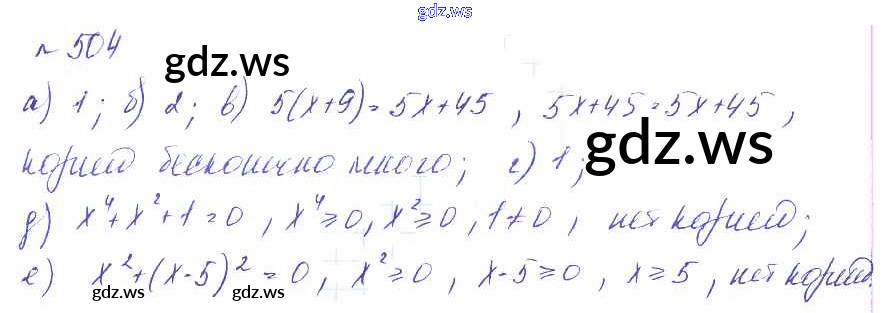 gdz.ws
№ 504
gdz.ws
а) 1; б) 2; в) 5(x+9)=5x+45, 5x+45=5x+45,
gdz.ws
корней бесконечно много; г) 1;
д) x⁴+x²+1=0, x⁴≥0, x²≥0, 1≠0, нет корней;
е) x²+(x-5)²=0, x²≥0, x-5≥0, x≥5, нет корней.
gdz.ws gdz.ws